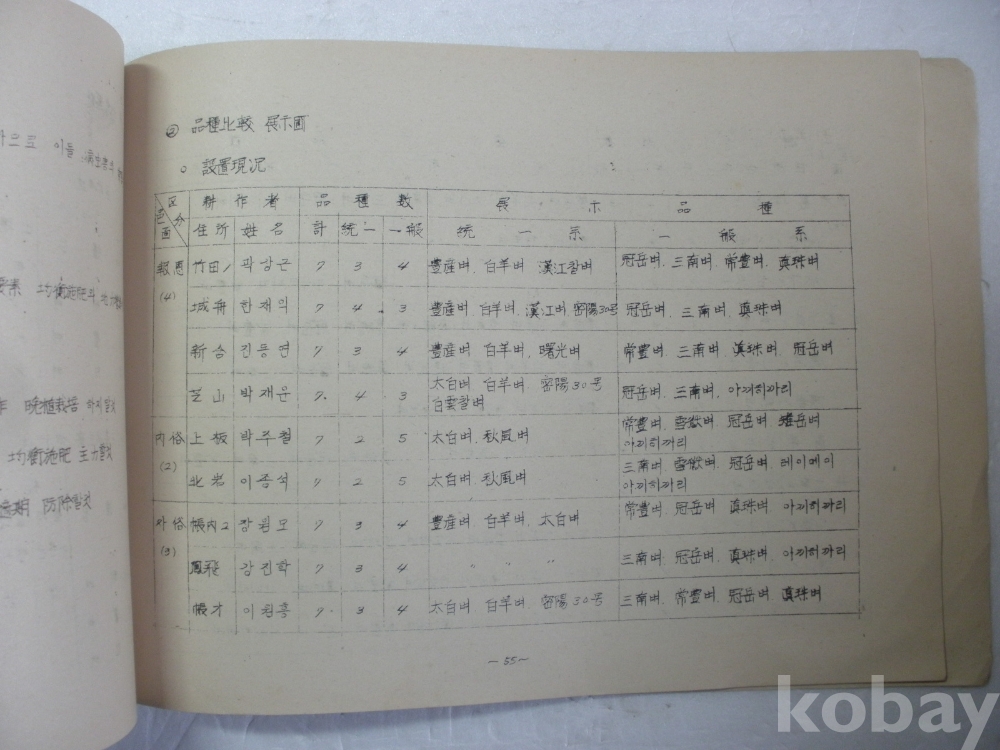 으로 이들
要素 均衡施肥와
晩植栽培 하지말것
均衡施肥 主力할것
適期 防除할것
② 品種比較 展示圃
○ 設置現況
区分 耕作者 品種数 展示品種
邑面 住所 姓名 計 統一 一般 統一系 一般系
報恩 竹田1 곽상근 7 3 4 豊産벼. 白羊벼. 漢江찰벼 冠岳벼. 三南벼. 常豊벼. 真珠벼
(4)
城舟 한재의 7 4 3 豊産벼 白羊벼. 漢江벼. 密陽30号 冠岳벼. 三南벼. 真珠벼
新合 진등연 7 3 4 豊産벼 白羊벼. 曙光벼 常豊벼. 三南벼. 真珠벼. 冠岳벼
芝山 박재운 7 4 3 太白벼. 白羊벼. 密陽30号 冠岳벼. 三南벼. 아끼히까리
白雲찰벼
内俗 上板 박주철 7 2 5 太白벼. 秋風벼 常豊벼. 雪嶽벼. 冠岳벼. 雉岳벼
아끼히까리
(2) 北岩 이종석 7 2 5 太白벼 秋風벼 三南벼. 雪嶽벼. 冠岳벼. レイメイ
아끼히까리
外俗 帳内2 장원모 7 3 4 豊産벼 白羊벼. 太白벼 常豊벼. 冠岳벼 真珠벼 아끼히까리
(3)
鳳飛 강진학 7 3 4 〃 〃 〃 三南벼. 冠岳벼. 真珠벼. 아끼히까리
帳才 이원흥 7 3 4 太白벼 白羊벼. 密陽30号 三南벼. 常豊벼. 冠岳벼. 真珠벼
-55-
kobay